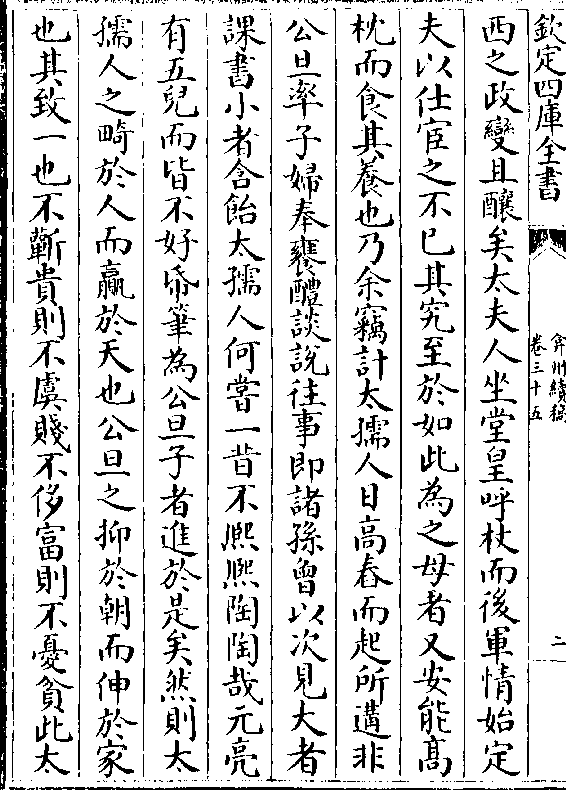 欽定四庫全書
弇州續稿
卷三十五
二
西之政變且釀矣太夫人坐堂皇呼杖而後軍情始定
夫以仕宦之不已其究至於如此為之母者又安能高
枕而食其養也乃余竊計太孺人日高舂而起所遘非
公旦率子婦奉饔醴談說往事即諸孫曾以次見大者
課書小者含飴太孺人何嘗一昔不熈熈陶陶哉元亮
有五兒而皆不好帋筆為公旦子者進於是矣然則太
孺人之畸於人而贏於天也公旦之抑於朝而伸於家
也其致一也不蘄貴則不虞賤不侈富則不憂貧此太